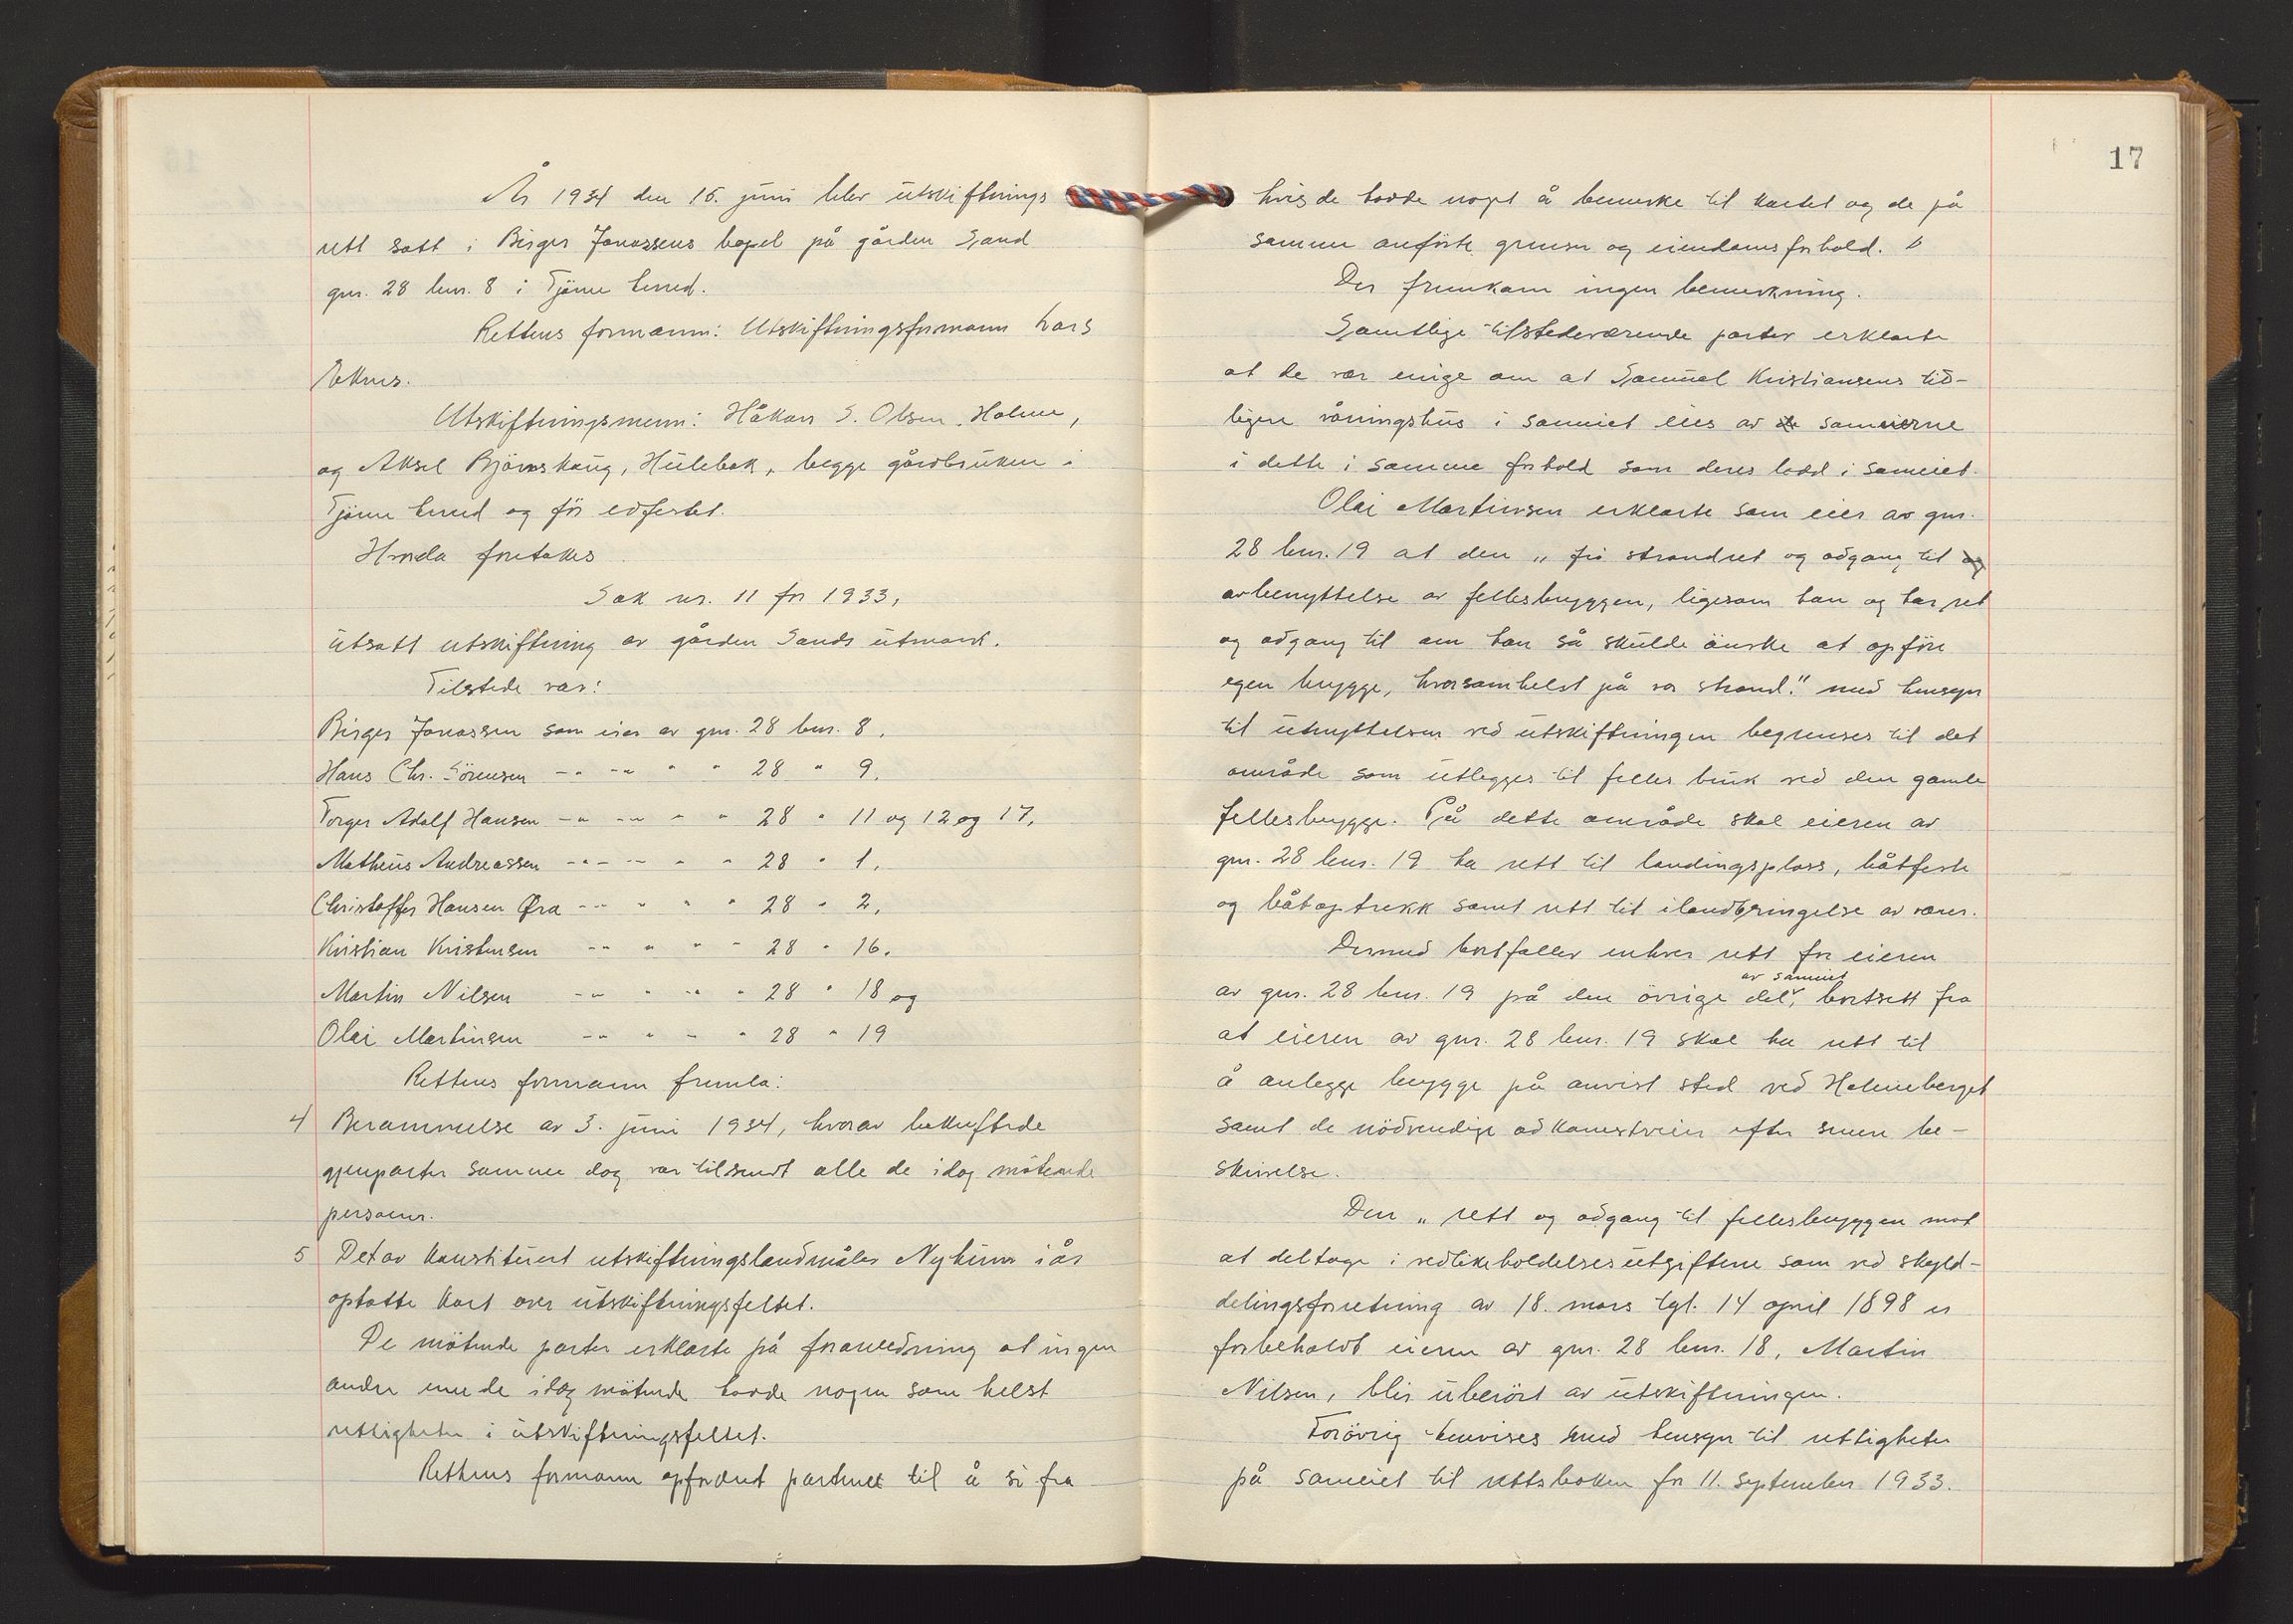 År 1934 den 15. juni blev utskiftnings
rett satt i Birger Jonassens bopel på gården Sand
gnr. 28 bnr. 8 i Tjöme herred.
Rettens formann: Utskiftningsformann Lars
Eknes.
Utskiftningsmenn: Håkon S. Olsen, Holme,
og Aksel Bjönskaug, Hulebak, begge gårdbrukere i
Tjöme herred og för edfestet.
Hvorda foretokes
Sak nr. 11 for 1933,
utsatt utskiftning av gården Sands utmark.
Tilstede var:
Birger Jonassen som eier av gnr. 28 bnr. 8.
Hans Chr. Sörensen -"- -"- " " 28 " 9.
Torger Adolf Hansen -"- -"- " " 28 " 11 og 12 og 17.
Matheus Andreassen -"- -"- " " 28 " 1.
Christoffer Hansen Øra -"- " " " 28 " 2.
Kristian Kristensen -"- " " " 28 " 16.
Martin Nilsen -"- " -"- " 28 " 18 og
Olai Martinsen -"- " - " 28 " 19
Rettens formann fremla:
4 Berammelse av 3. juni 1934, hvorav bekreftede
gjenparter samme dag var tilsendt alle de idag mötende
personer.
5 Det av konstituert utskiftningslandmåler Nyhuus i år
optatte kart over utskiftningsfeltet.
De mötende parter erklærte på foranledning at ingen
andre enn de idag mötende hadde nogen som helst
rettigheter i utskiftningsfeltet.
Rettens formann opfordret partene til å si fra
17
hvis de hadde noget å bemerke til kartet og de på
samme anförte grenser og eiendomsforhold.
Der fremkom ingen bemerkning.
Samtlige tilstedeværende parter erklærte
at de var enige om at Samuel Kristiansens tid-
ligere våningshus i sameiet eies av sameierne
i dette i samme forhold som deres lodd i sameiet.
Olai Martinsen erklærte som eier av gnr.
28 bnr. 19 at den „fri strandret og adgang til
avbenyttelse av fellesbryggen, ligesom han og har ret
og adgang til om han så skulde önske at opföre
egen brygge, hvorsomhelst på vor strand." med hensyn
til utnyttelsen ved utskiftningen begrenses til det
område som utlegges til felles bruk ved den gamle
fellesbrygge. På dette område skal eieren av
gnr. 28 bnr. 19 ha rett til landingsplass, båtfeste
og båtoptrekk samt rett til ilandbringelse av varer.
Dermed bortfaller enhver rett for eieren
av gnr. 28 bnr. 19 på den övrige del av sameiet, bortsett fra
at eieren av gnr. 28 bnr. 19 skal ha rett til
å anlegge brygge på anvist sted ved Holmeberget
samt de nödvendige adkomstveier efter senere be-
skrivelse.
Den „rett og adgang til fellesbryggen mot
at deltage i vedlikeholdelsesutgiftene som ved skyld-
delingsforretning av 18. mars tgl. 14 april 1898 er
forbeholdt eieren av gnr. 28 bnr. 18, Martin
Nilsen, blir uberört av utskiftningen.
Forövrig henvises med hensyn til rettigheter
på sameiet til rettsboken for 11. september 1933.